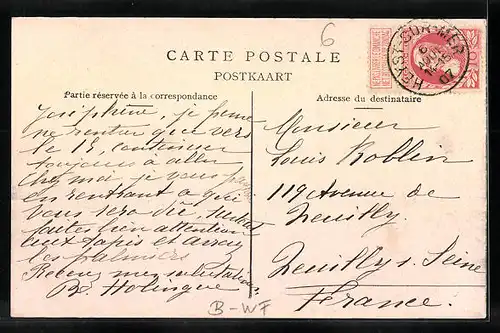 6
CARTE POSTALE
POSTKAART
Partie réservée à la correspondance
Adresse du destinataire
HEYST-SUR-MER
6
AOUT
07
Joséphine, je pense
ne rentrer que vers
le 15, continuer
toujours à aller
chez moi je vous
en rentrant a qui
vous sera dû, surtout
faites bien attention
aux tapis et arroser
les palmiers
Recevez mes salutations
B. Holingue
Monsieur
Louis Roblin
119 Avenue de
Neuilly.
Neuilly s. Seine
France.
B-WF